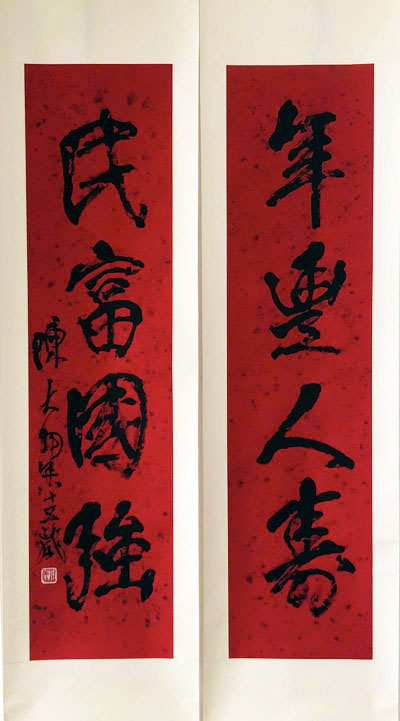 年豐人壽
民富國強
陳大羽年八十五歲